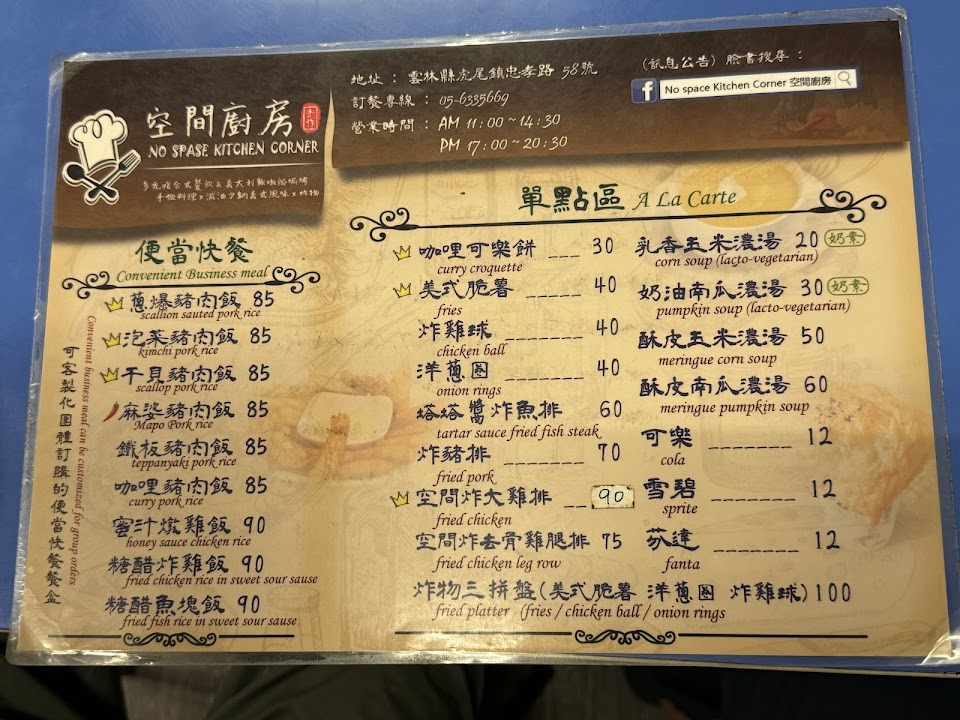 空間廚房 手作
NO SPASE KITCHEN CORNER
地址：雲林縣虎尾鎮忠孝路 58號
訂餐專線：05-6335669
營業時間：AM 11:00~14:30
PM 17:00~20:30
(訊息公告) 臉書搜尋：
f No space Kitchen Corner 空間廚房
便當快餐
Convenient Business meal
蔥爆豬肉飯 85
scallion sauted pork rice
泡菜豬肉飯 85
kimchi pork rice
干貝豬肉飯 85
scallop pork rice
麻婆豬肉飯 85
Mapo Pork rice
鐵板豬肉飯 85
teppanyaki pork rice
咖哩豬肉飯 85
curry pork rice
蜜汁燉雞飯 90
honey sauce chicken rice
糖醋炸雞飯 90
fried chicken rice in sweet sour sause
糖醋魚塊飯 90
fried fish rice in sweet sour sause
可客製化團體訂購的便當快餐餐盒
Convenient business meal can be customized for group orders
單點區 A La Carte
咖哩可樂餅 ___ 30
curry croquette
美式脆薯 _____ 40
fries
炸雞球 _______ 40
chicken ball
洋蔥圈 _______ 40
onion rings
塔塔醬炸魚排 60
tartar sauce fried fish steak
炸豬排 _______ 70
fried pork
空間炸大雞排 __ 90
fried chicken
空間炸去骨雞腿排 75
fried chicken leg row
炸物三拼盤(美式脆薯 洋蔥圈 炸雞球)100
fried platter (fries / chicken ball / onion rings
乳香玉米濃湯 20 奶素
corn soup (lacto-vegetarian)
奶油南瓜濃湯 30 奶素
pumpkin soup (lacto-vegetarian)
酥皮玉米濃湯 50
meringue corn soup
酥皮南瓜濃湯 60
meringue pumpkin soup
可樂 ________ 12
cola
雪碧 ________ 12
sprite
芬達 ________ 12
fanta